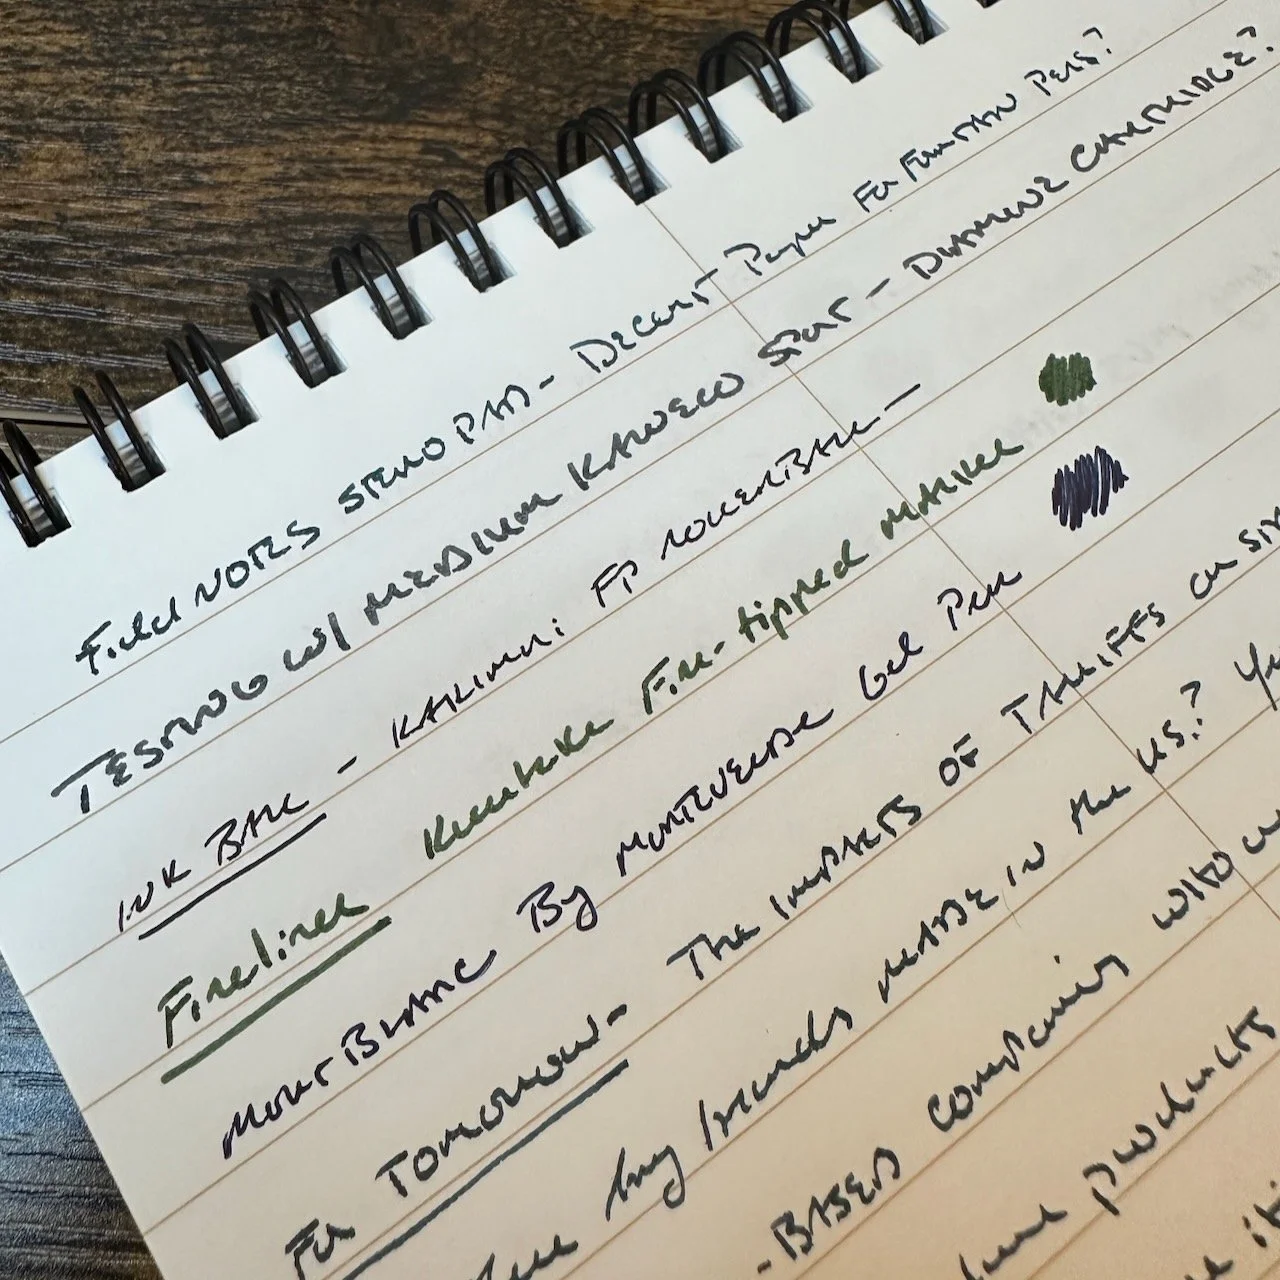 Field NOTES STENO PAD - DECENT Paper For Fountain Pens?
TESTING W/ MEDIUM KAWECO SPORT - DIAMINE CARTRIDGE?
INK BALL - KAKIMORI FP ROLLERBALL -
Fineliner Kuretake Fine-tipped marker
MONTBLANC By MONTEVERDE Gel Pen
For TOMORROW - The IMPACTS OF TARIFFS on
any brands MADE IN the US?
-BASED company who
products